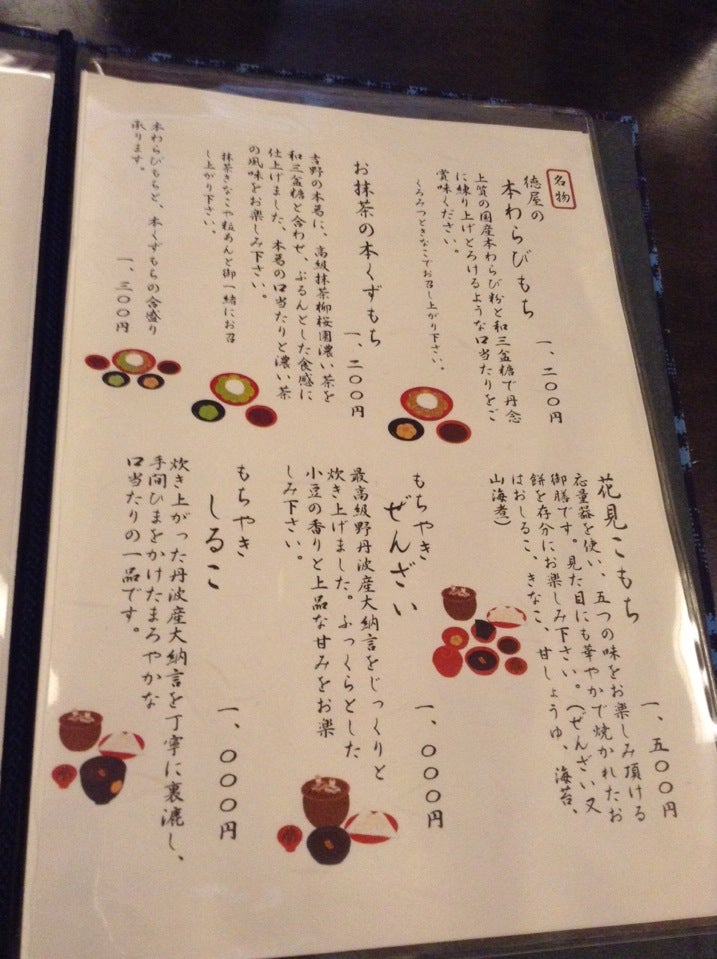 名物
徳屋の
本わらびもち
一、二〇〇円
上質の国産本わらび粉と和三盆糖で丹念
に練り上げとろけるような口当たりをご
賞味ください。
くろみつときなこでお召し上がり下さい。
お抹茶の本くずもち
一、二〇〇円
吉野の本葛に、高級抹茶柳桜園濃い茶を
和三盆糖と合わせ、ぷるんとした食感に
仕上げました、本葛の口当たりと濃い茶
の風味をお楽しみ下さい。
抹茶きなこや粒あんと御一緒にお召
し上がり下さい。
本わらびもちと、本くずもちの合盛り
承ります。
一、三〇〇円
花見こもち
一、五〇〇円
応量器を使い、五つの味をお楽しみ頂ける
御膳です。見た目にも華やかで焼かれたお
餅を存分にお楽しみ下さい。(ぜんざい又
はおしるこ、きなこ、甘しょうゆ、海苔、
山海煮)
もちやき
ぜんざい
一、〇〇〇円
最高級野丹波産大納言をじっくりと
炊き上げました。ふっくらとした
小豆の香りと上品な甘みをお楽
しみ下さい。
もちやき
しるこ
一、〇〇〇円
炊き上がった丹波産大納言を丁寧に裏漉し、
手間ひまをかけたまろやかな
口当たりの一品です。